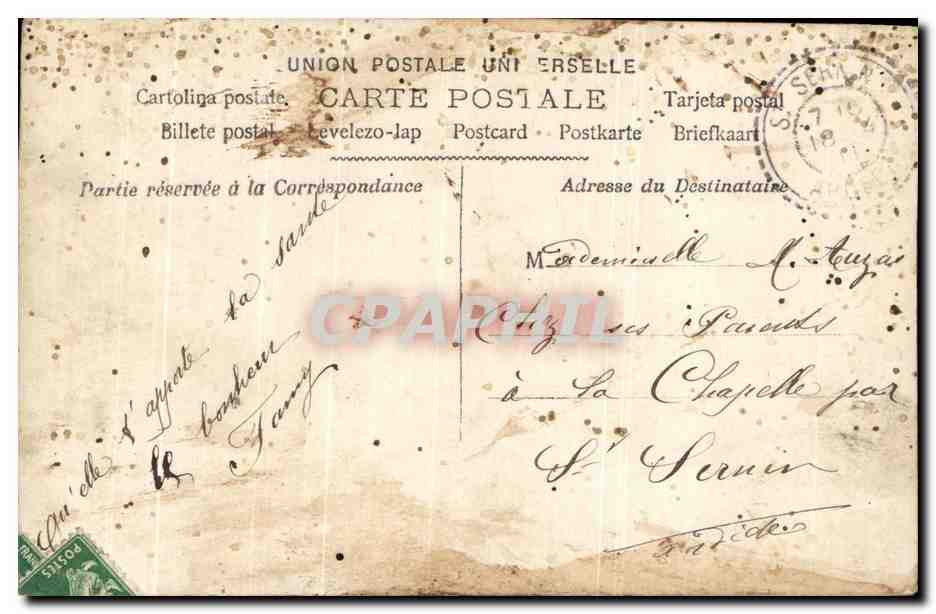 UNION POSTALE UNI ERSELLE
Cartolina postale CARTE POSTALE Tarjeta postal
Billete postal Levelezo-lap Postcard Postkarte Briefkaart
Partie réservée à la Correspondance
Adresse du Destinataire
Qu'elle t'apporte la santé
le bonheur
Fanny
Mademoiselle M. Auzas
Chez ses Parents
à la Chapelle par
St Sernin
Ardèche
CPAPHIL
POSTES